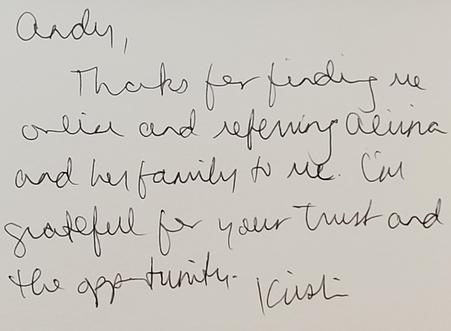 Andy,
Thanks for finding me
online and referring Alina
and her family to me. I'm
grateful for your trust and
the opportunity.
Kristi